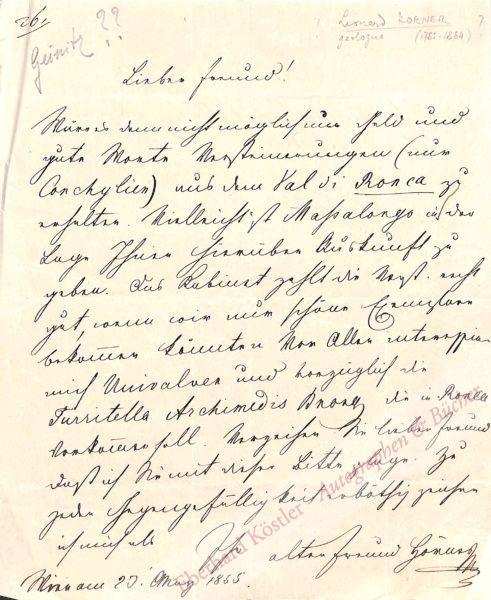 26.
Geinitz ??
? Leonard HORNER ?
géologue (1785-1864)
Lieber Freund!
Wäre es denn nicht möglich um Geld und
gute Worte Versteinerungen (nur
Conchylien) aus dem Val di Ronca zu
erhalten. Vielleicht ist Massalongo in der
Lage Ihnen hierüber Auskunft zu
geben. Das Kabinet zahlt die Verst. recht
gut, wenn wir nur schöne Exemplare
bekommen könnten. Vor Allen interessiren
mich Univalven und vorzüglich die
Turritella Archimedis Brong die in Ronca
vorkommen soll. Verzeihen Sie lieber Freund
daß ich Sie mit dieser Bitte plage. Zu
jeder Gegengefälligkeit erböthig zeichne
ich mich als Ihr alter Freund Hörnes
Wien am 23. May 1855.
Eberhard Köstler Autographen & Bücher